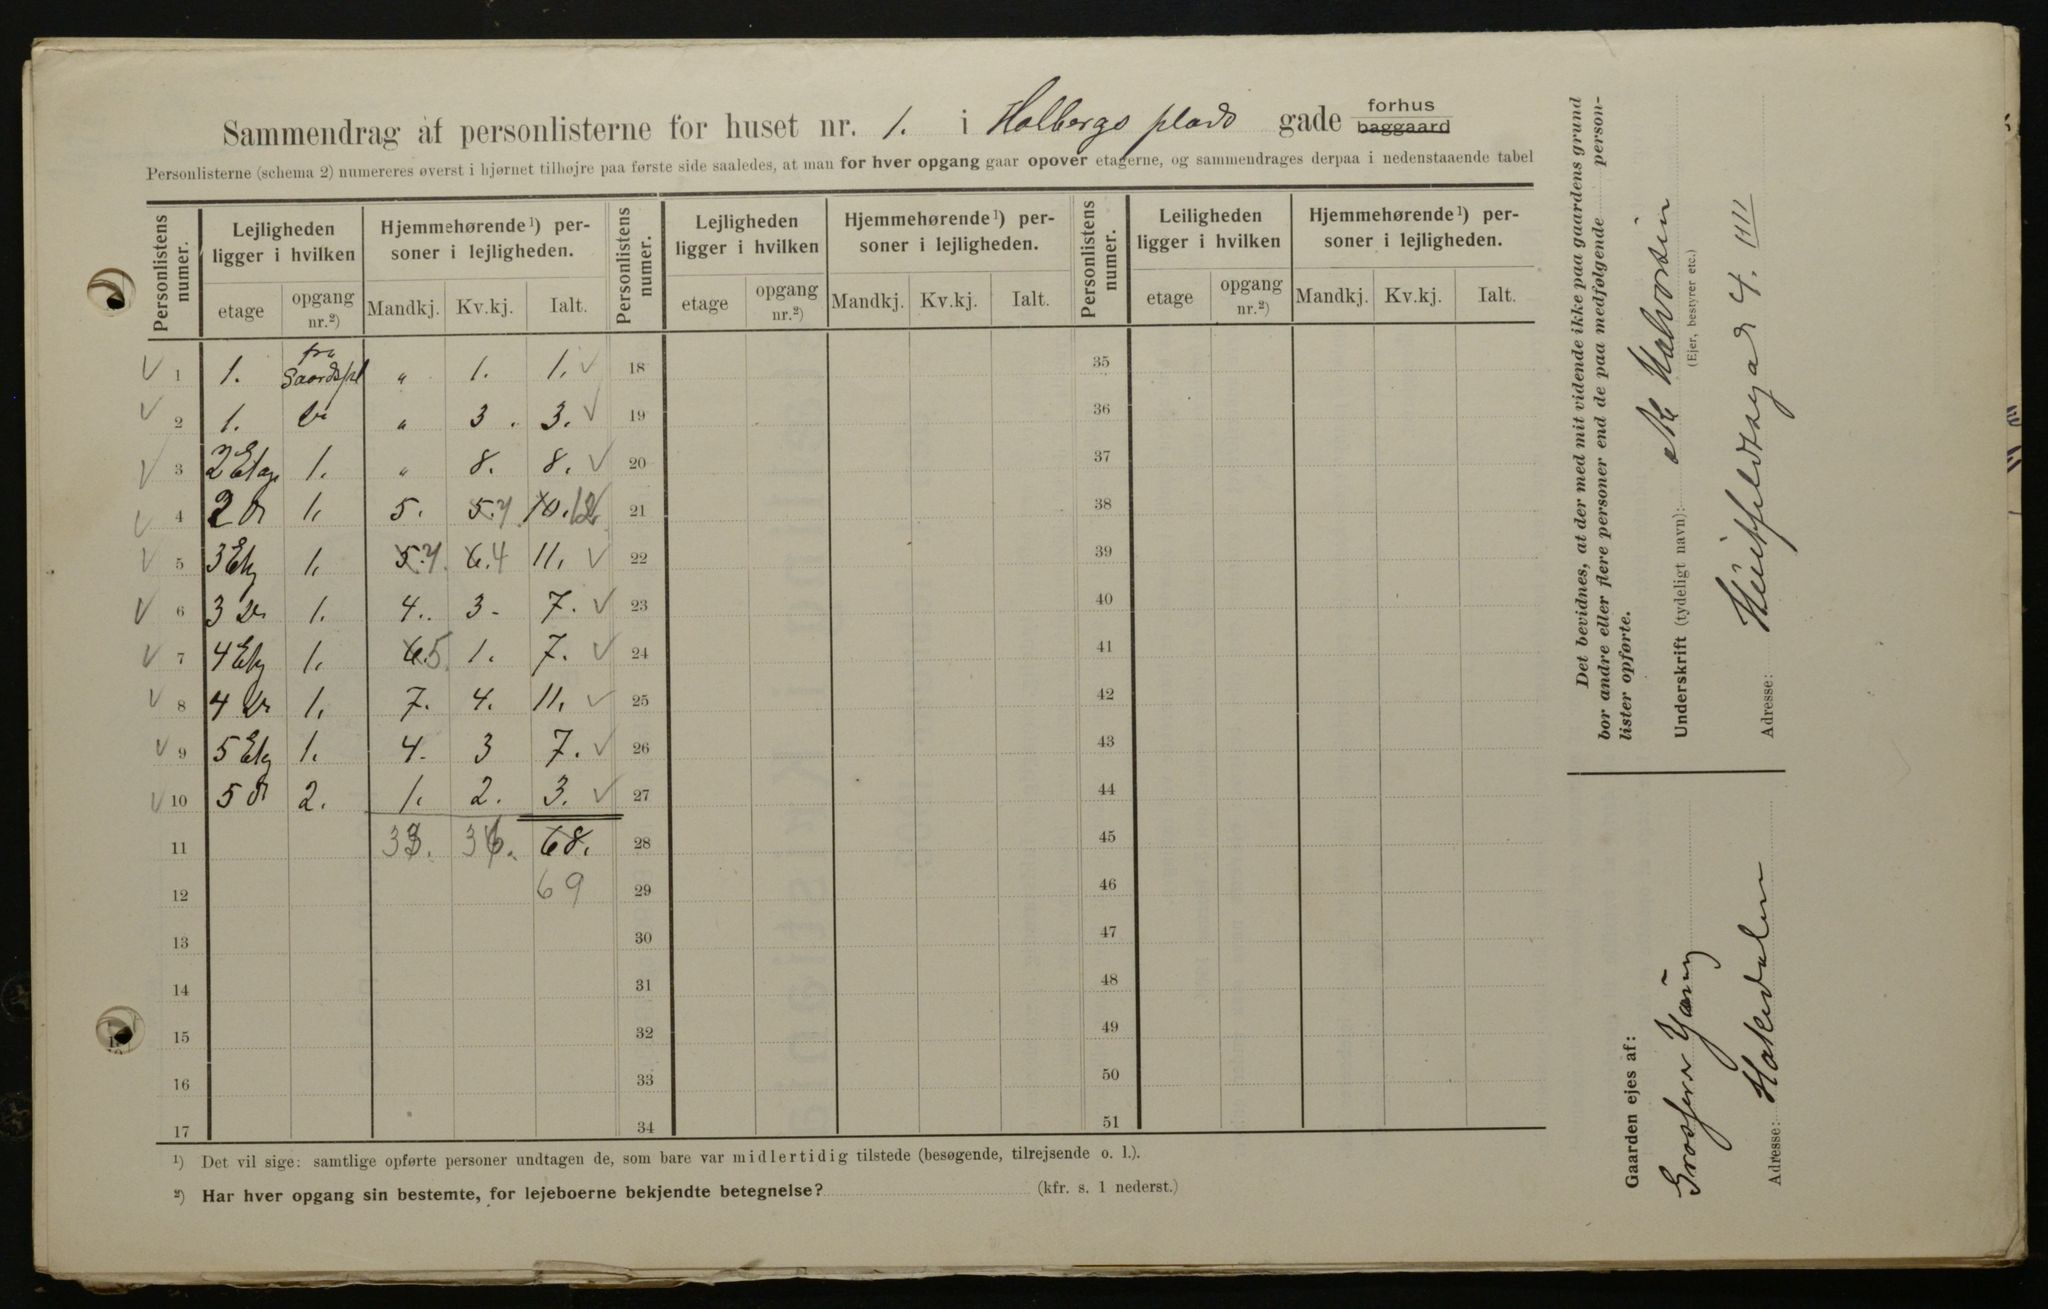 Sammendrag af personlisterne for huset nr. 1. i Holbergs plads gade forhus baggaard
Personlisterne (schema 2) numereres øverst i hjørnet tilhøjre paa første side saaledes, at man for hver opgang gaar opover etagerne, og sammendrages derpaa i nedenstaaende tabel
Personlistens numer. Lejligheden ligger i hvilken Hjemmehørende¹) personer i lejligheden. Personlistens numer. Lejligheden ligger i hvilken Hjemmehørende¹) personer i lejligheden. Personlistens numer. Leiligheden ligger i hvilken Hjemmehørende¹) personer i lejligheden.
etage opgang nr.²) Mandkj. Kv.kj. Ialt. etage opgang nr.²) Mandkj. Kv.kj. Ialt. etage opgang nr.²) Mandkj. Kv.kj. Ialt.
1 1. fra Gaardspl „ 1. 1. 18 35
2 1. „ 3. 3. 19 36
3 2 Etag. 1. „ 8. 8. 20 37
4 2 1. 5. 5. 7 10. 12 21 38
5 3 Etg 1. 5. 7. 6. 4 11. 22 39
6 3 1. 4. 3 - 7. 23 40
7 4 Etg 1. 6. 5. 1. 7. 24 41
8 4 1. 7. 4. 11. 25 42
9 5 Etg 1. 4. 3 7. 26 43
10 5 2. 1. 2. 3. 27 44
11 33. 36. 68. 28 45
12 69 29 46
13 30 47
14 31 48
15 32 49
16 33 50
17 34 51
¹) Det vil sige: samtlige opførte personer undtagen de, som bare var midlertidig tilstede (besøgende, tilrejsende o. l.).
²) Har hver opgang sin bestemte, for lejeboerne bekjendte betegnelse? (kfr. s. 1 nederst.)
Det bevidnes, at der med mit vidende ikke paa gaardens grund
bor andre eller flere personer end de paa medfølgende person-
lister opførte.
Underskrift (tydeligt navn): M Halvorsen
(Ejer, bestyrer etc.)
Adresse: Huitfeldtsgade 4. III
Gaarden ejes af:
Grosserer Young
Adresse: Hakedalen